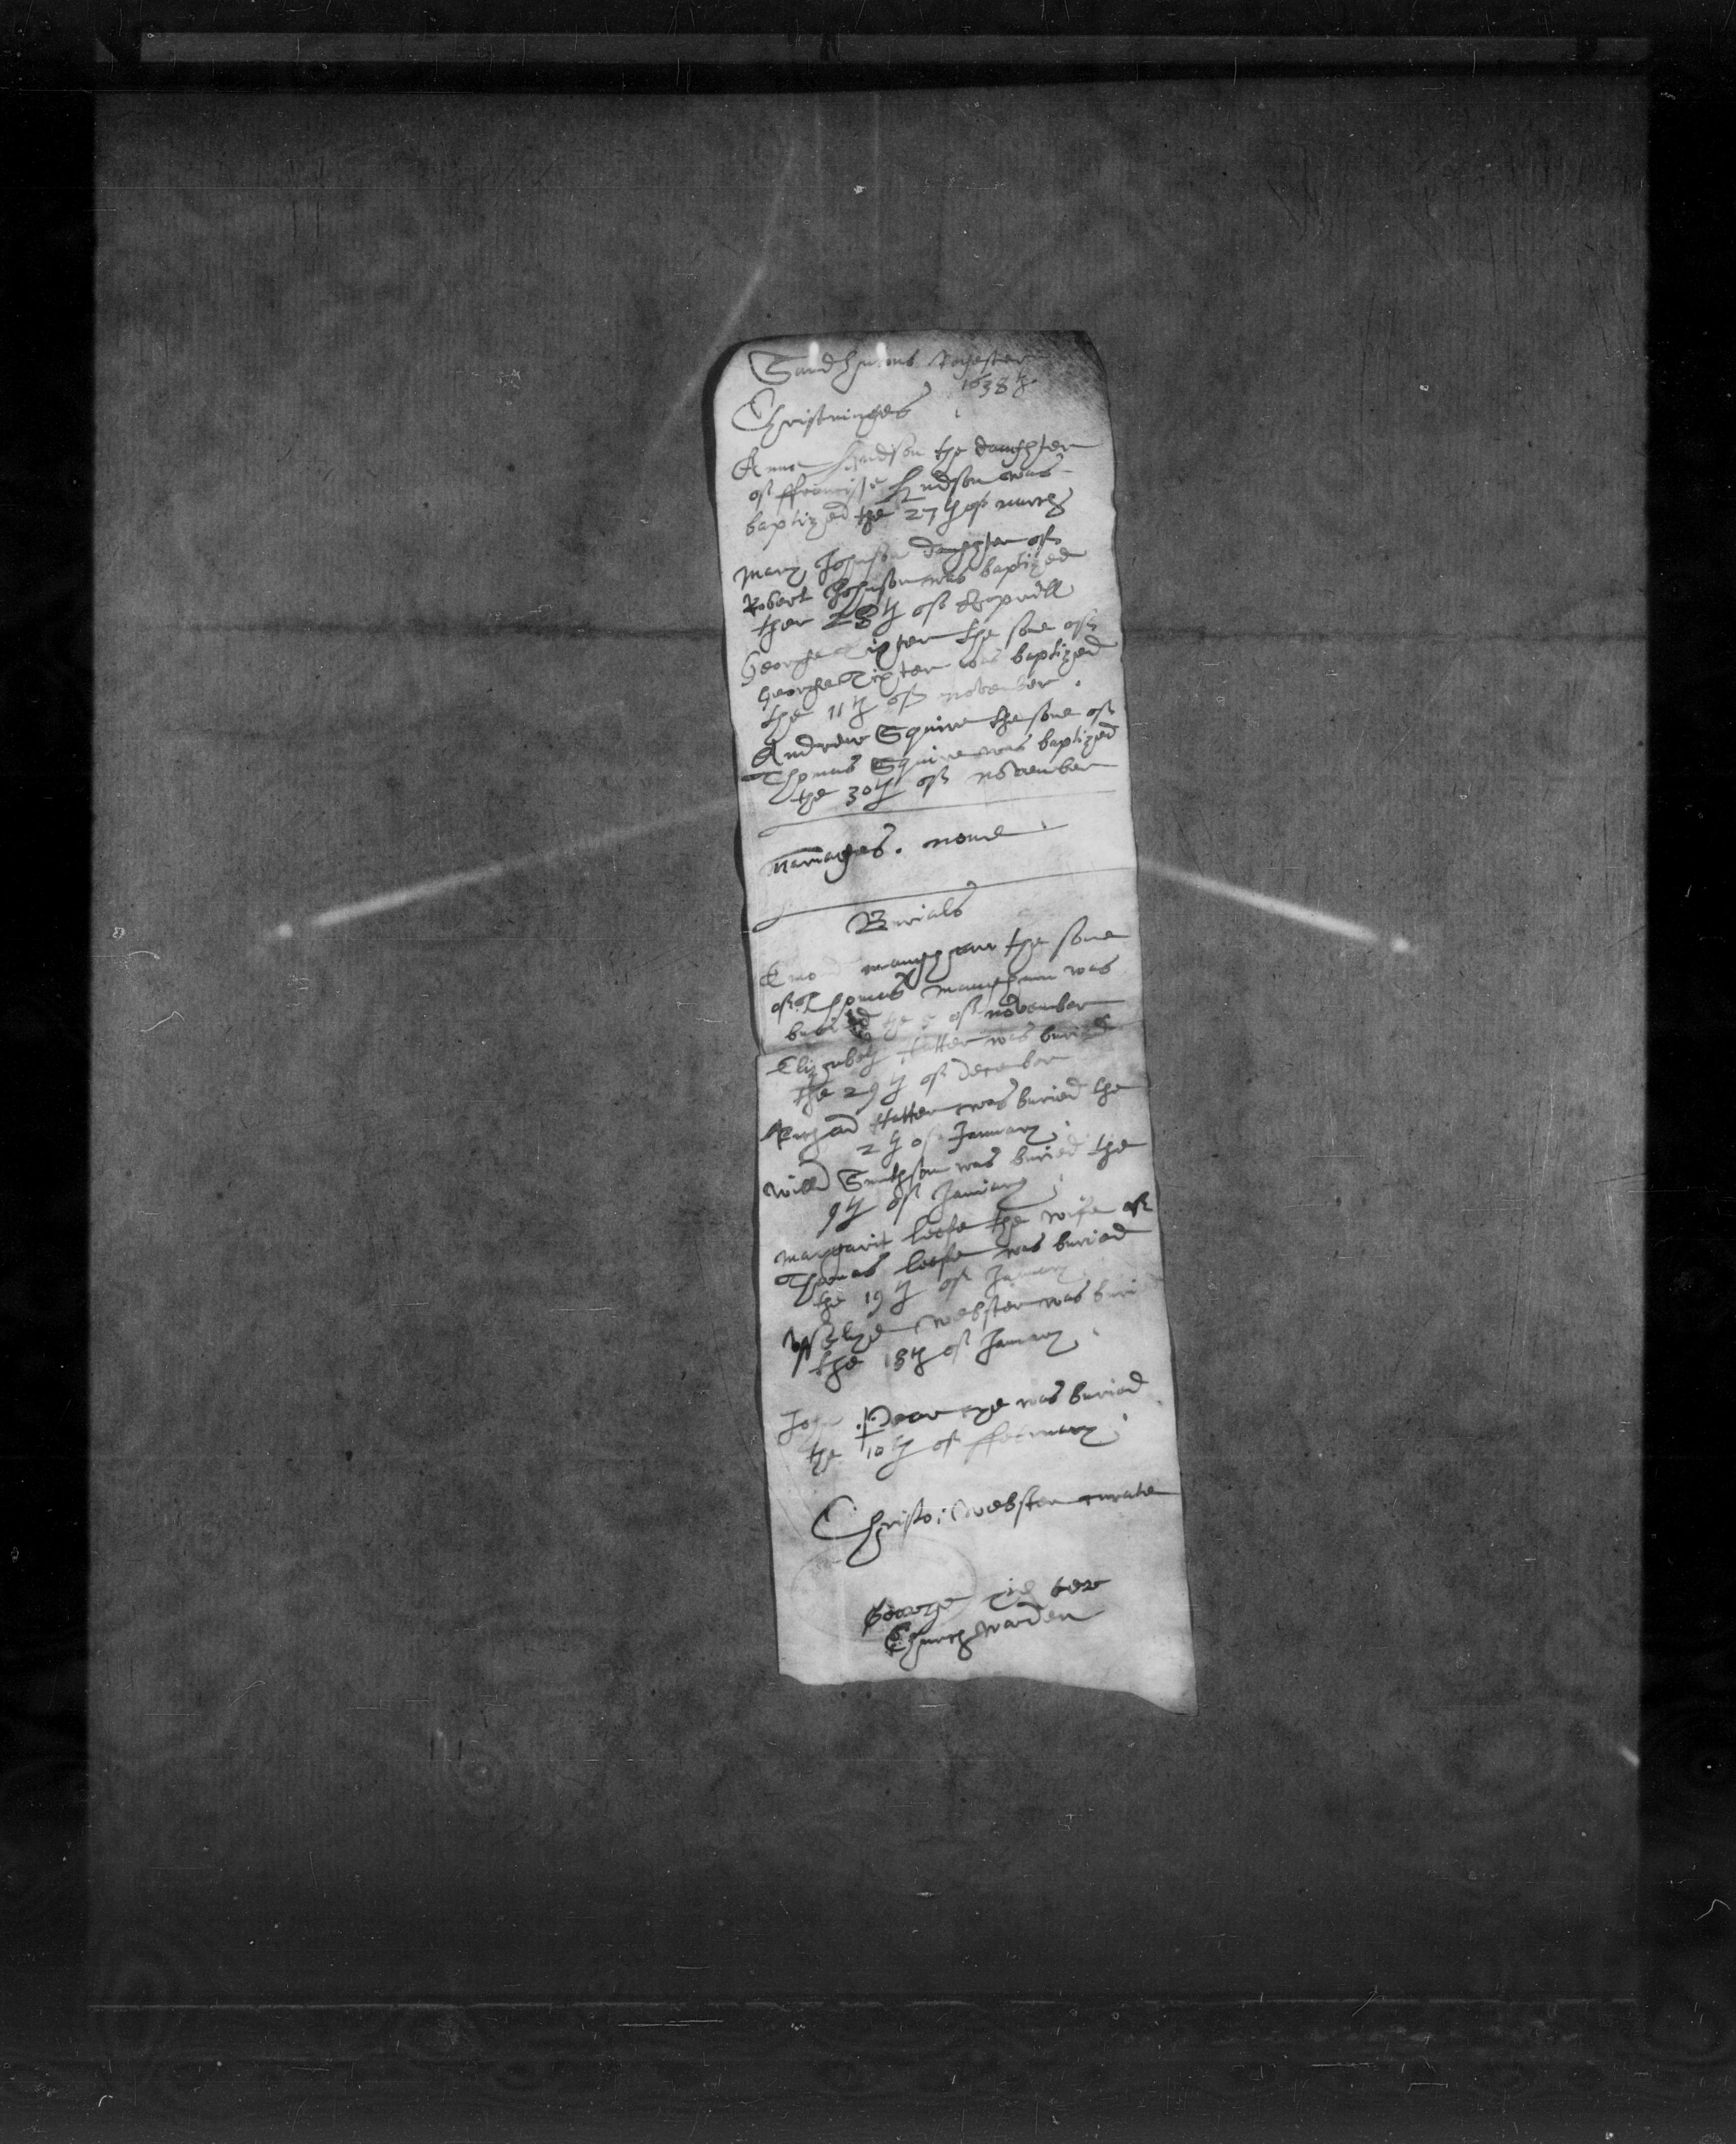 Sand Huttons Regester
1638
Christninges
Anne Hudson the daughter
of ffrancisse Hudson was
baptized the 27th of march
Mary Johnson daughter of
Robert Johnson was baptized
the 28th of Aprill
George the sone of
George was baptized
the 11th of november
Andrew Squire the sone of
Thomas Squire was baptized
the 30th of november
Mariages. none
Burials
the sone
of Thomas was
buried the of november
Elizabeth Hatter was buried
the 29th of December
Richard Hatter was buried the
2th of January
Willm Smithson was buried the
9th of January
Margarit leefe the wife of
Thomas leefe was buried
the 19th of January
Webster was buri
the 18th of January
John was buried
the 10th of ffebruary
Christo: Webster curate
George
Church warden